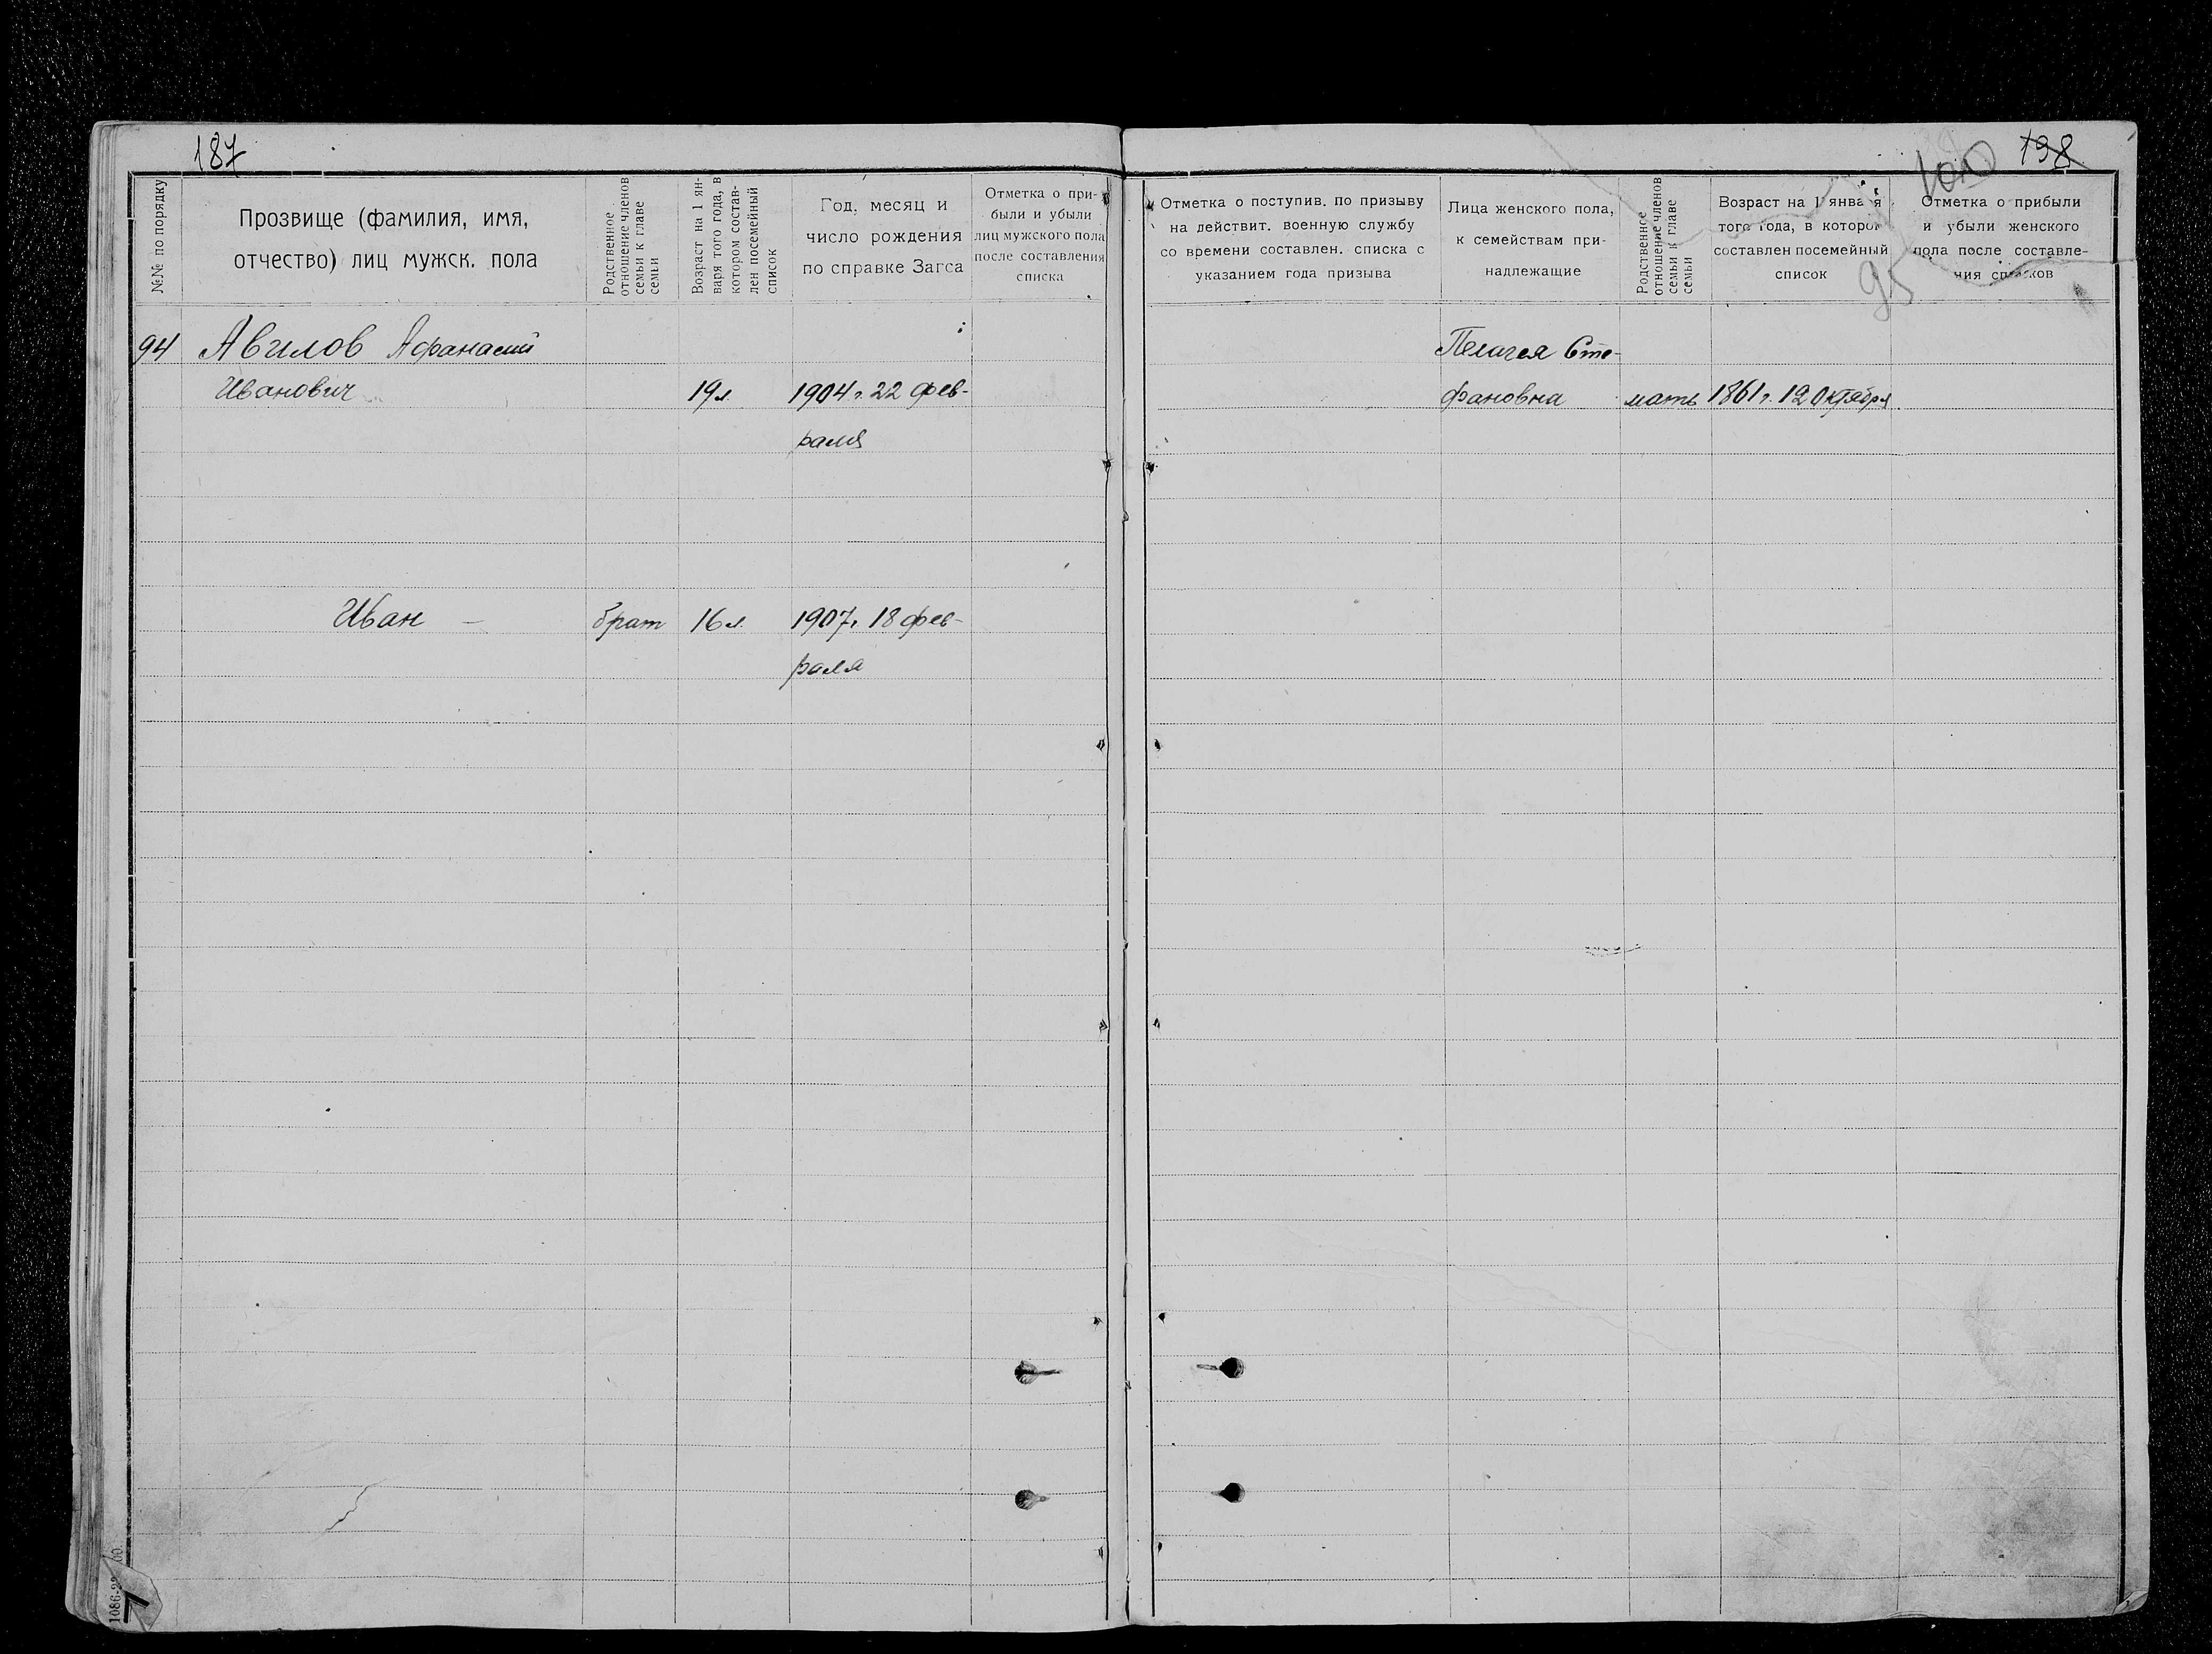 187
№№ по порядку
Прозвище (фамилия, имя,
отчество) лиц мужск. пола
Родственное
отношение членов
семьи к главе
семьи
Возраст на 1 ян-
варя того года, в
котором состав-
лен посемейный
список
Год, месяц и
число рождения
по справке Загса
Отметка о при-
были и убыли
лиц мужского пола
после составления
списка
94 Авилов Афанасий
Иванович 19 л. 1904 г. 22 фев-
раля
Иван — брат 16 л. 1907 г. 18 фев-
раля
1086-
198
100
95
Отметка о поступив. по призыву
на действит. военную службу
со времени составлен. списка с
указанием года призыва
Лица женского пола,
к семействам при-
надлежащие
Родственное
отношение членов
семьи к главе
семьи
Возраст на 1 января
того года, в которо
составлен посемейный
список
Отметка о прибыли
и убыли женского
пола после составле-
ния списков
Пелагея Сте-
фановна мать 1861 г. 12 Октября